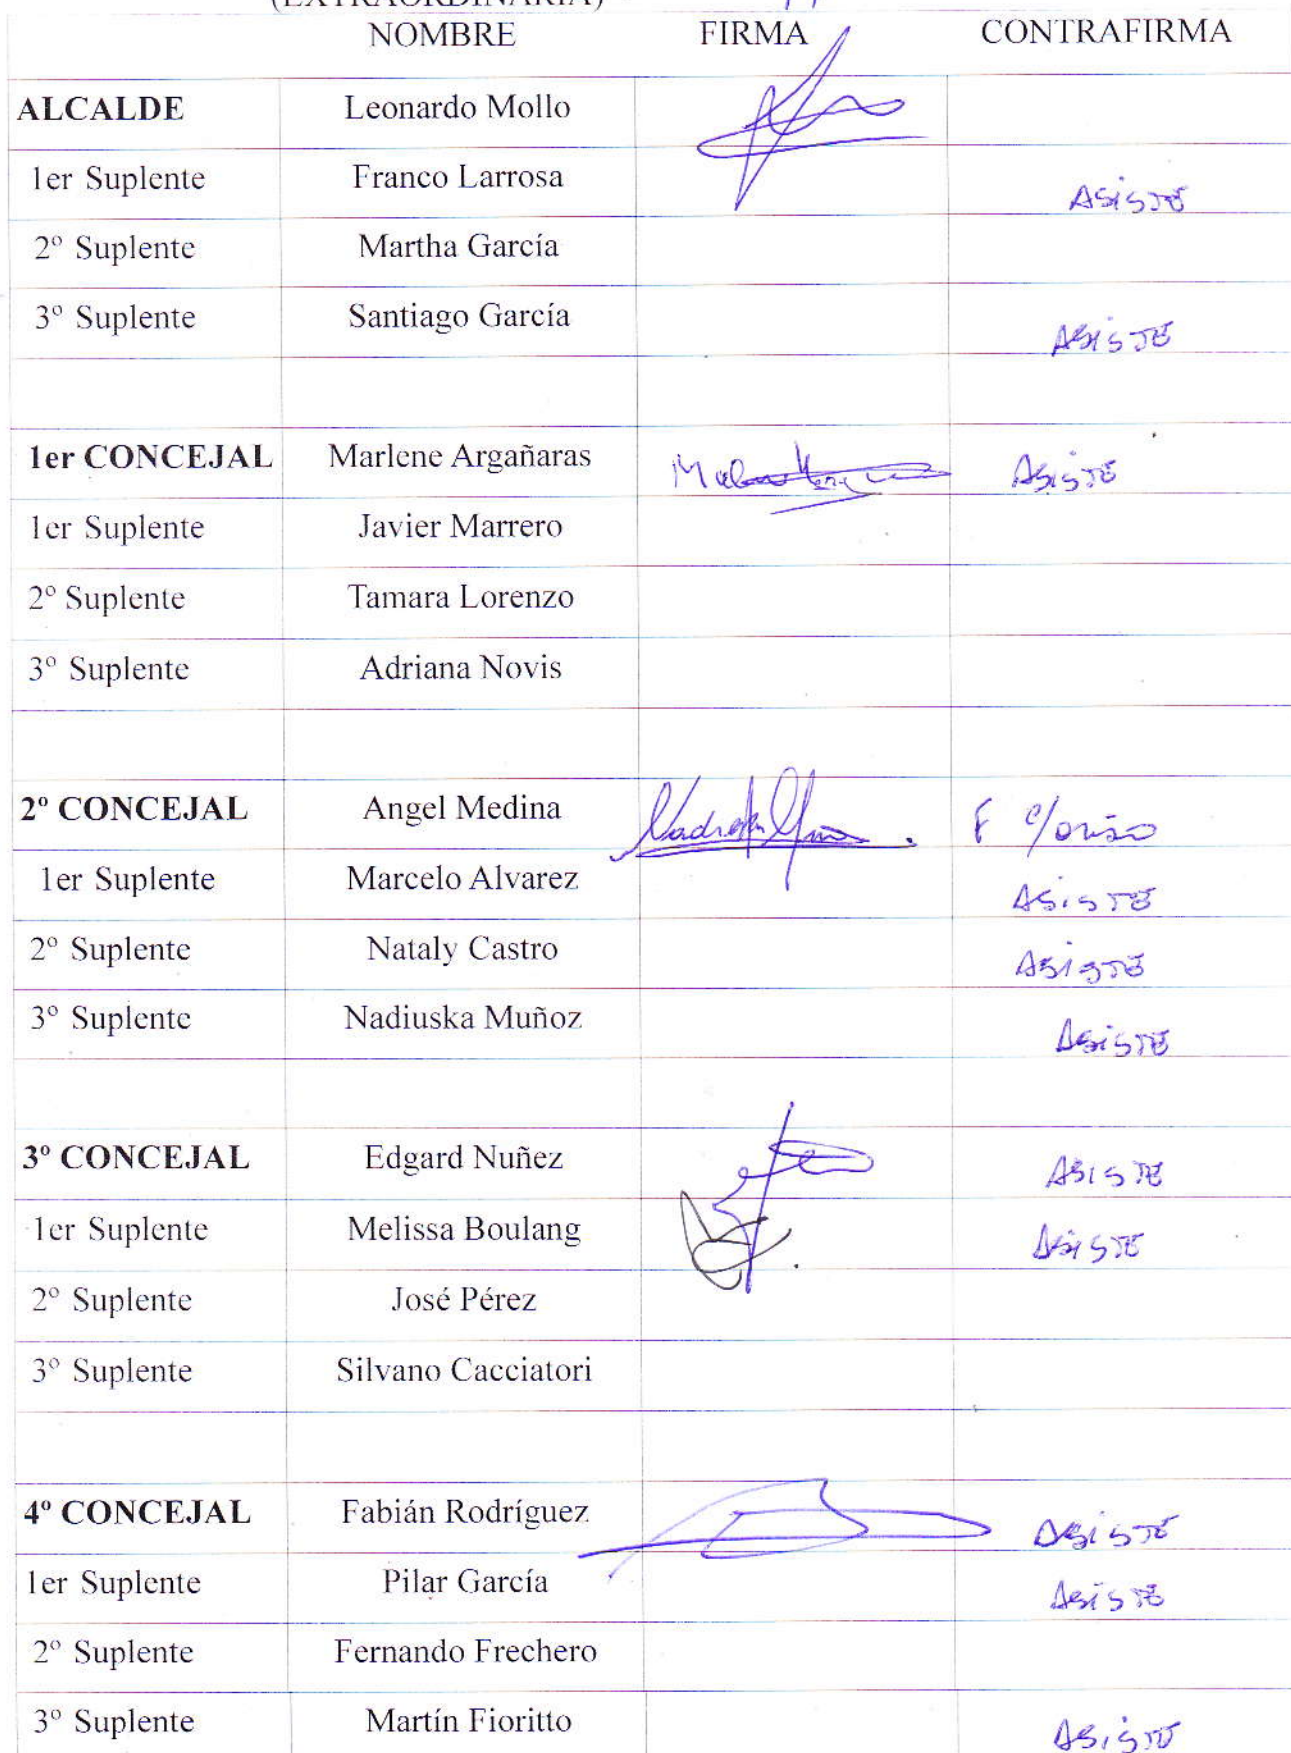 (EXTRAORDINARIA)
NOMBRE FIRMA CONTRAFIRMA
ALCALDE Leonardo Mollo
1er Suplente Franco Larrosa ASISTE
2º Suplente Martha García
3º Suplente Santiago García ASISTE
1er CONCEJAL Marlene Argañaras ASISTE
1er Suplente Javier Marrero
2º Suplente Tamara Lorenzo
3º Suplente Adriana Novis
2º CONCEJAL Angel Medina F c/aviso
1er Suplente Marcelo Alvarez ASISTE
2º Suplente Nataly Castro ASISTE
3º Suplente Nadiuska Muñoz ASISTE
3º CONCEJAL Edgard Nuñez ASISTE
1er Suplente Melissa Boulang ASISTE
2º Suplente José Pérez
3º Suplente Silvano Cacciatori
4º CONCEJAL Fabián Rodríguez ASISTE
1er Suplente Pilar García ASISTE
2º Suplente Fernando Frechero
3º Suplente Martín Fioritto ASISTE